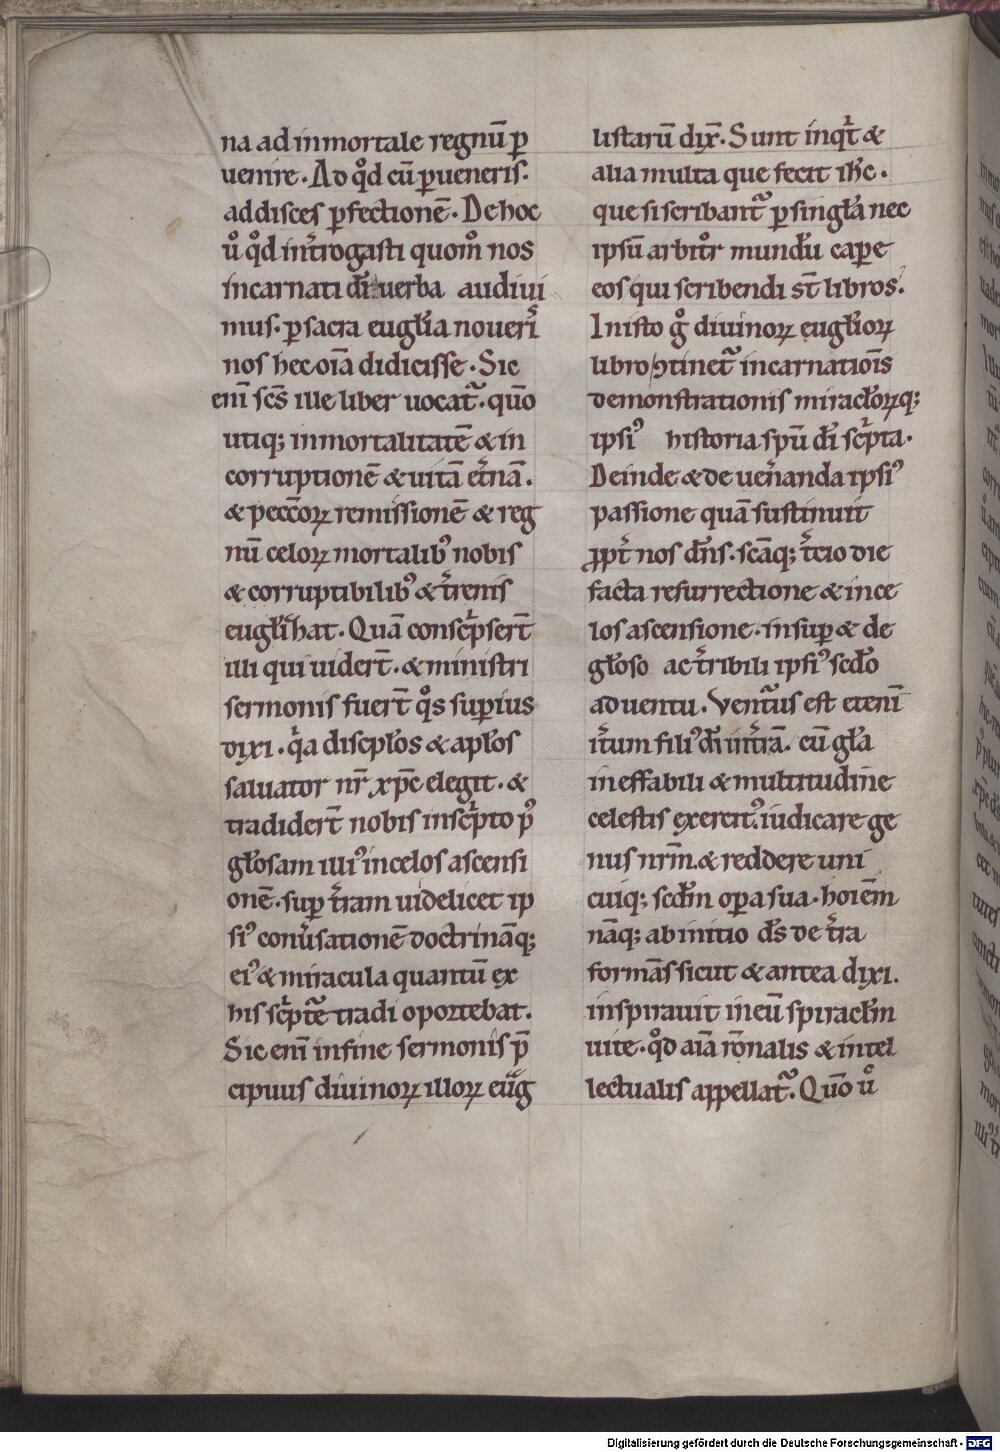 na ad inmortale regnū ꝑ
uenire. Ad qͦd cū ꝑueneris.
addisces ꝑfectionē. De hoc
uͦ qͦd int̾rogasti quomͦ nos
incarnati dī uerba audiui
mus. ꝑ sacra eugl̄ia noueri̾
nos hec oīa didicisse. Sic
enī sc̄s ille liber uocat᷑. quō
utiq; inmortalitatē & in
corruptionē & uitā et̾nā.
& pecc̄oꝝ remissionē & reg
nū celoꝝ mortalibꝰ nobis
& corruptibilibꝰ & t̾renis
eugl̄ihat. Quā consc̾psert̄
illi qui uidert̄. & ministri
sermonis fuert̄ qͦs supiꝰus
dixi. qͣa discipl̄os & apl̄os
saluator nr̄ xp̄c elegit. &
tradidert̄ nobis insc̾pto pꝰ
gl̄osam illiꝰ incelos ascensi
onē. suꝑ t̾ram uidelicet ip
siꝰ conu̾sationē doctrināq;
eiꝰ & miracula quantū ex
his sc̾pte᷑ tradi oportebat.
Sic enī in fine sermonis p̄
cipuus diuinoꝝ illoꝝ eūg
listarū dix̄. Sunt inqͥt &
alia multa que fecit ih̄c.
que si scribant᷑ ꝑ singl̄a nec
ipsū arbitͦr mundū caꝑe
eos qui scribendi st̄ libros.
In isto gͦ diuinoꝝ eugl̄ioꝝ
libro ꝯtinet᷑ incarnatiōis
demonstrationis miracl̄oꝝq;
ipsiꝰ historia spū dī sc̾pta.
Deinde & de uen̾anda ipsiꝰ
passione quā sustinuit
ꝓpt̾ nos dn̄s. scāq; t̾cio die
facta resurrectione & in ce
los ascensione. insuꝑ & de
gl̄oso ac t̾ribili ipsiꝰ scd̄o
aduentu. Ventᷓus est etenī
it̾um filiꝰ dī in t̾rā. cū gl̄a
ineffabili & multitudine
celestis exercitꝰ. iudicare ge
nus nr̄m. & reddere uni
cuiq; scd̄m oꝑa sua. hoīem
nāq; ab initio ds̄ de t̾ra
formās sicut & antea dixi.
inspirauit in eū spiracl̄m
uite. qͦd aīa rōnalis & intel
lectualis appellat᷑. Quō uͦ
Digitalisierung gefördert durch die Deutsche Forschungsgemeinschaft - DFG